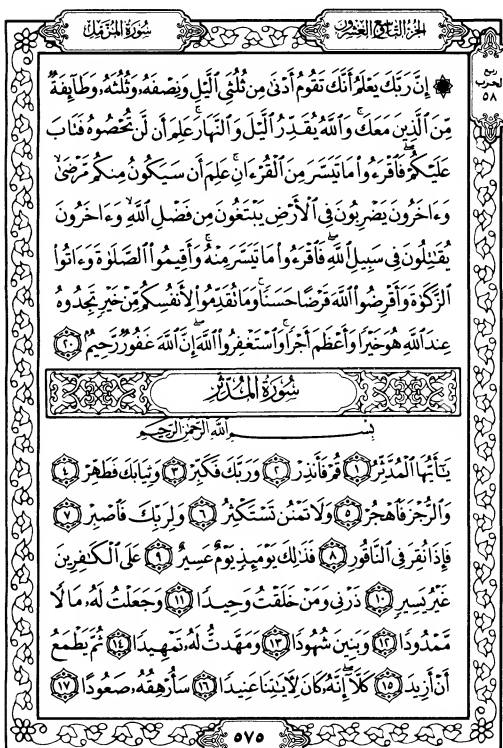 سُورَةُ المُزَّمِّلِ
الجُزْءُ التَّاسِعُ وَالعِشْرُونَ
ربع
الحزب
٥٨
۞ إِنَّ رَبَّكَ يَعْلَمُ أَنَّكَ تَقُومُ أَدْنَىٰ مِن ثُلُثَىِ ٱلَّيْلِ وَنِصْفَهُۥ وَثُلُثَهُۥ وَطَآئِفَةٌ
مِّنَ ٱلَّذِينَ مَعَكَ ۚ وَٱللَّهُ يُقَدِّرُ ٱلَّيْلَ وَٱلنَّهَارَ ۚ عَلِمَ أَن لَّن تُحْصُوهُ فَتَابَ
عَلَيْكُمْ ۖ فَٱقْرَءُوا۟ مَا تَيَسَّرَ مِنَ ٱلْقُرْءَانِ ۚ عَلِمَ أَن سَيَكُونُ مِنكُم مَّرْضَىٰ ۙ
وَءَاخَرُونَ يَضْرِبُونَ فِى ٱلْأَرْضِ يَبْتَغُونَ مِن فَضْلِ ٱللَّهِ ۙ وَءَاخَرُونَ
يُقَٰتِلُونَ فِى سَبِيلِ ٱللَّهِ ۖ فَٱقْرَءُوا۟ مَا تَيَسَّرَ مِنْهُ ۚ وَأَقِيمُوا۟ ٱلصَّلَوٰةَ وَءَاتُوا۟
ٱلزَّكَوٰةَ وَأَقْرِضُوا۟ ٱللَّهَ قَرْضًا حَسَنًا ۚ وَمَا تُقَدِّمُوا۟ لِأَنفُسِكُم مِّنْ خَيْرٍ تَجِدُوهُ
عِندَ ٱللَّهِ هُوَ خَيْرًا وَأَعْظَمَ أَجْرًا ۚ وَٱسْتَغْفِرُوا۟ ٱللَّهَ ۖ إِنَّ ٱللَّهَ غَفُورٌ رَّحِيمٌۢ ٢٠
سُورَةُ المُدَّثِّرِ
بِسْمِ ٱللَّهِ ٱلرَّحْمَٰنِ ٱلرَّحِيمِ
يَٰٓأَيُّهَا ٱلْمُدَّثِّرُ ١ قُمْ فَأَنذِرْ ٢ وَرَبَّكَ فَكَبِّرْ ٣ وَثِيَابَكَ فَطَهِّرْ ٤
وَٱلرُّجْزَ فَٱهْجُرْ ٥ وَلَا تَمْنُن تَسْتَكْثِرُ ٦ وَلِرَبِّكَ فَٱصْبِرْ ٧
فَإِذَا نُقِرَ فِى ٱلنَّاقُورِ ٨ فَذَٰلِكَ يَوْمَئِذٍ يَوْمٌ عَسِيرٌ ٩ عَلَى ٱلْكَٰفِرِينَ
غَيْرُ يَسِيرٍ ١٠ ذَرْنِى وَمَنْ خَلَقْتُ وَحِيدًا ١١ وَجَعَلْتُ لَهُۥ مَالًا
مَّمْدُودًا ١٢ وَبَنِينَ شُهُودًا ١٣ وَمَهَّدتُّ لَهُۥ تَمْهِيدًا ١٤ ثُمَّ يَطْمَعُ
أَنْ أَزِيدَ ١٥ كَلَّآ ۖ إِنَّهُۥ كَانَ لِءَايَٰتِنَا عَنِيدًا ١٦ سَأُرْهِقُهُۥ صَعُودًا ١٧
٥٧٥